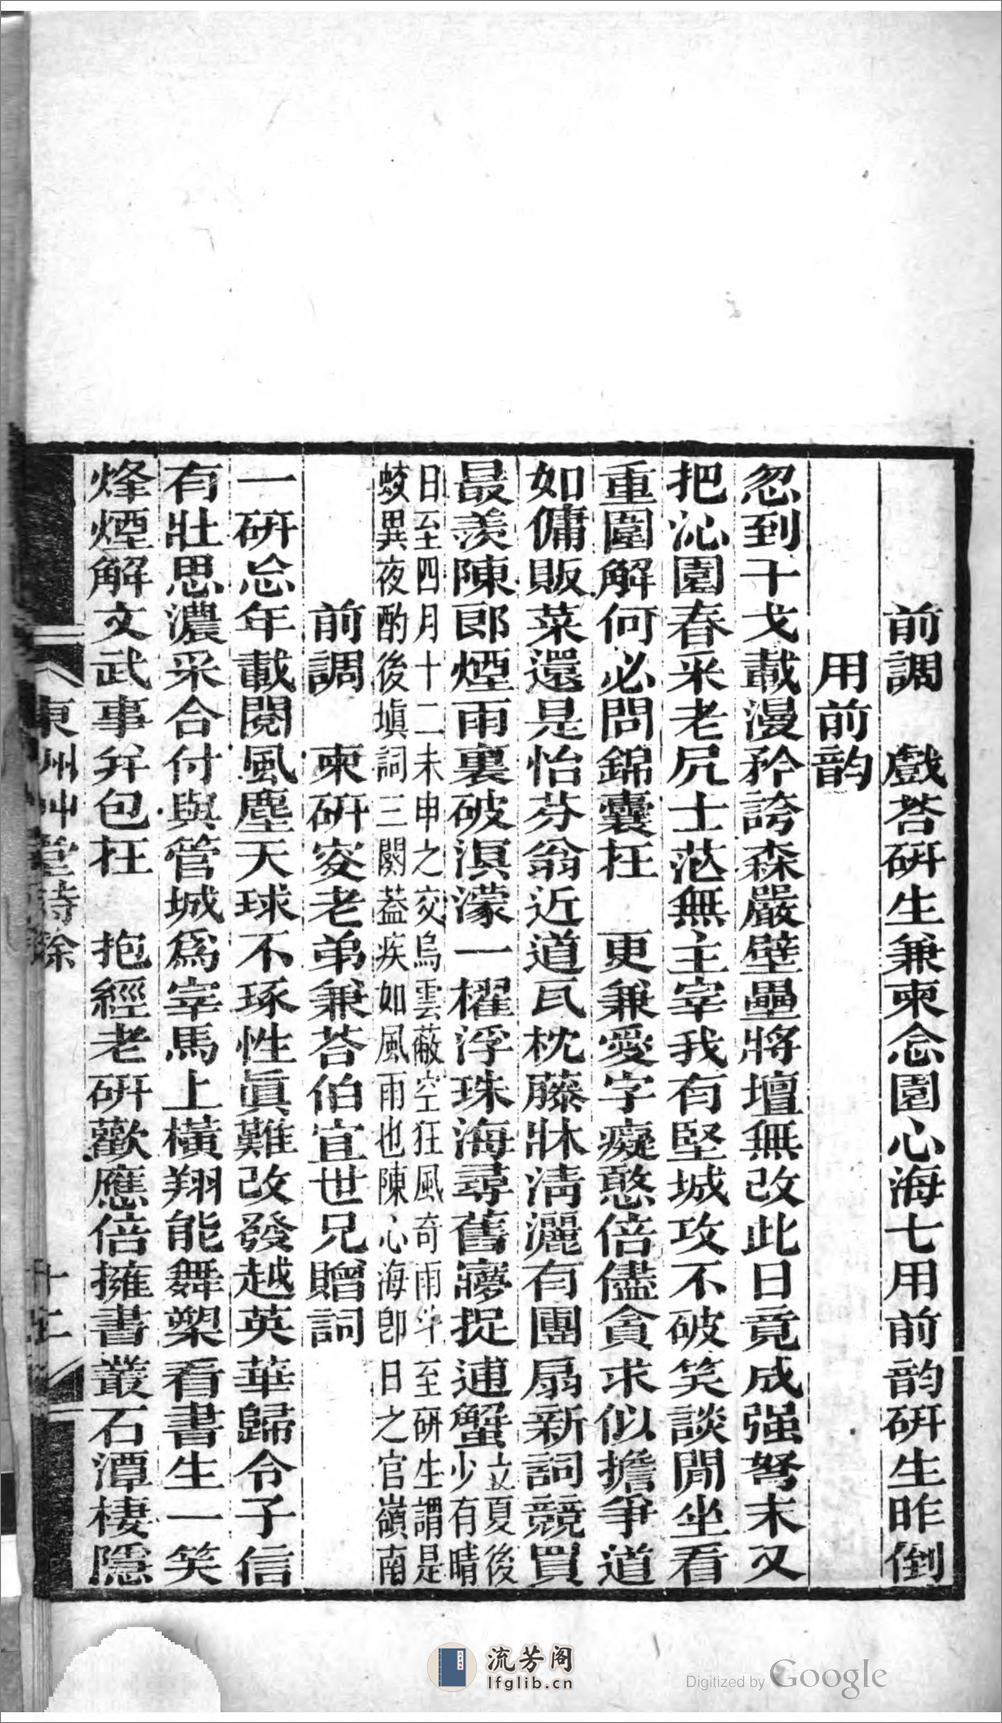 前調　戲荅研生兼柬念園心海七用前韵研生昨倒
用前韵
忽到干戈載漫矜誇森嚴壁壘將壇無改此日竟成强弩末又
把沁園春采老尻士茫無主宰我有堅城攻不破笑談閒坐看
重圍解何必問錦囊在　更兼愛字癡憨倍儘貪求似擔爭道
如傭販菜還是怡芬翁近道瓦枕藤牀淸灑有團扇新詞競買
最羨陳郎煙雨裏破溟濛一櫂浮珠海尋舊寱捉連蟹立夏後少有晴
日至四月十二未申之交烏雲蔽空狂風奇雨斗至研生謂是
蛟異夜酌後塡詞三闋葢疾如風雨也陳心海卽日之官嶺南
前調　柬研叜老弟兼荅伯宜世兄贈詞
一研忩年載閱風塵天球不琢性眞難改發越英華歸令子信
有壯思濃采合付與管城爲宰馬上橫翔能舞槊看書生一笑
烽煙解文武事幷包在　抱經老研歡應倍擁書叢石潭棲隱
東州艸堂詩餘
十二
流芳阁
lfglib.cn
Digitized by Google